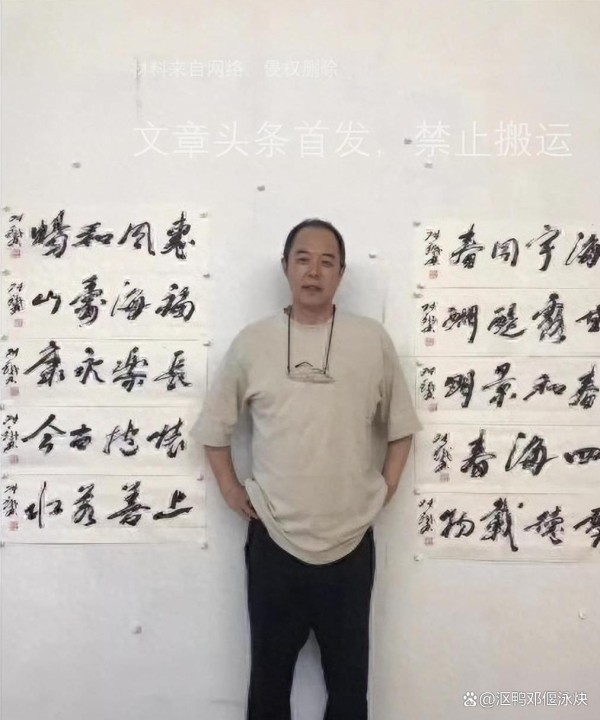 材料来自网络、侵权删除
文章头条首发，禁止搬运
惠风和畅
福海寿山
长乐永康
怀抱古今
上善若水
海宇同春
甘露醍醐
春和景明
四海春
厚德载物
@沤鸭邓偃泳炔